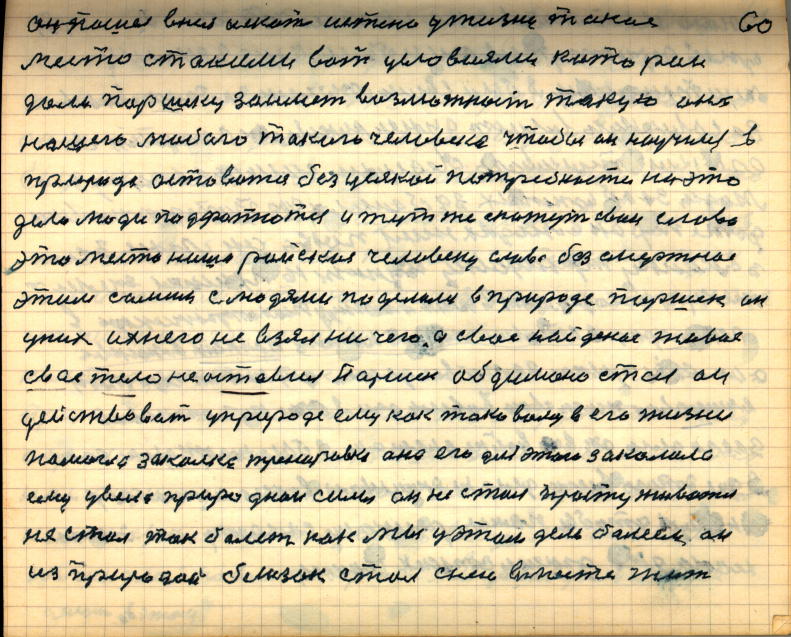 он пошел в нея искат истено у жизне такое 60
место стакими вот условиями катораи
дала паршеку займет возможност такую она
нашего любого такого человека чтобы он научился в
природе оставатся без усякой потребности на это
дело люди падхватются и тут же скажут свои слова
это места наша райская человеку слава безсмертное
этим самим слюдями поделили в природе паршек он
уних ихнего не взял ни чего, а свое найденое живое
свае тело не оставил Паршек обдумоно стал он
действоват уприроде ему как таковому в его жизни
памагла закалка тренировка она его для этого закалила
ему увела природнои силы он не стал просту живатся
не стал так болет как мы уэтом деле болеем он
из природай близок стал с нею вместе жит